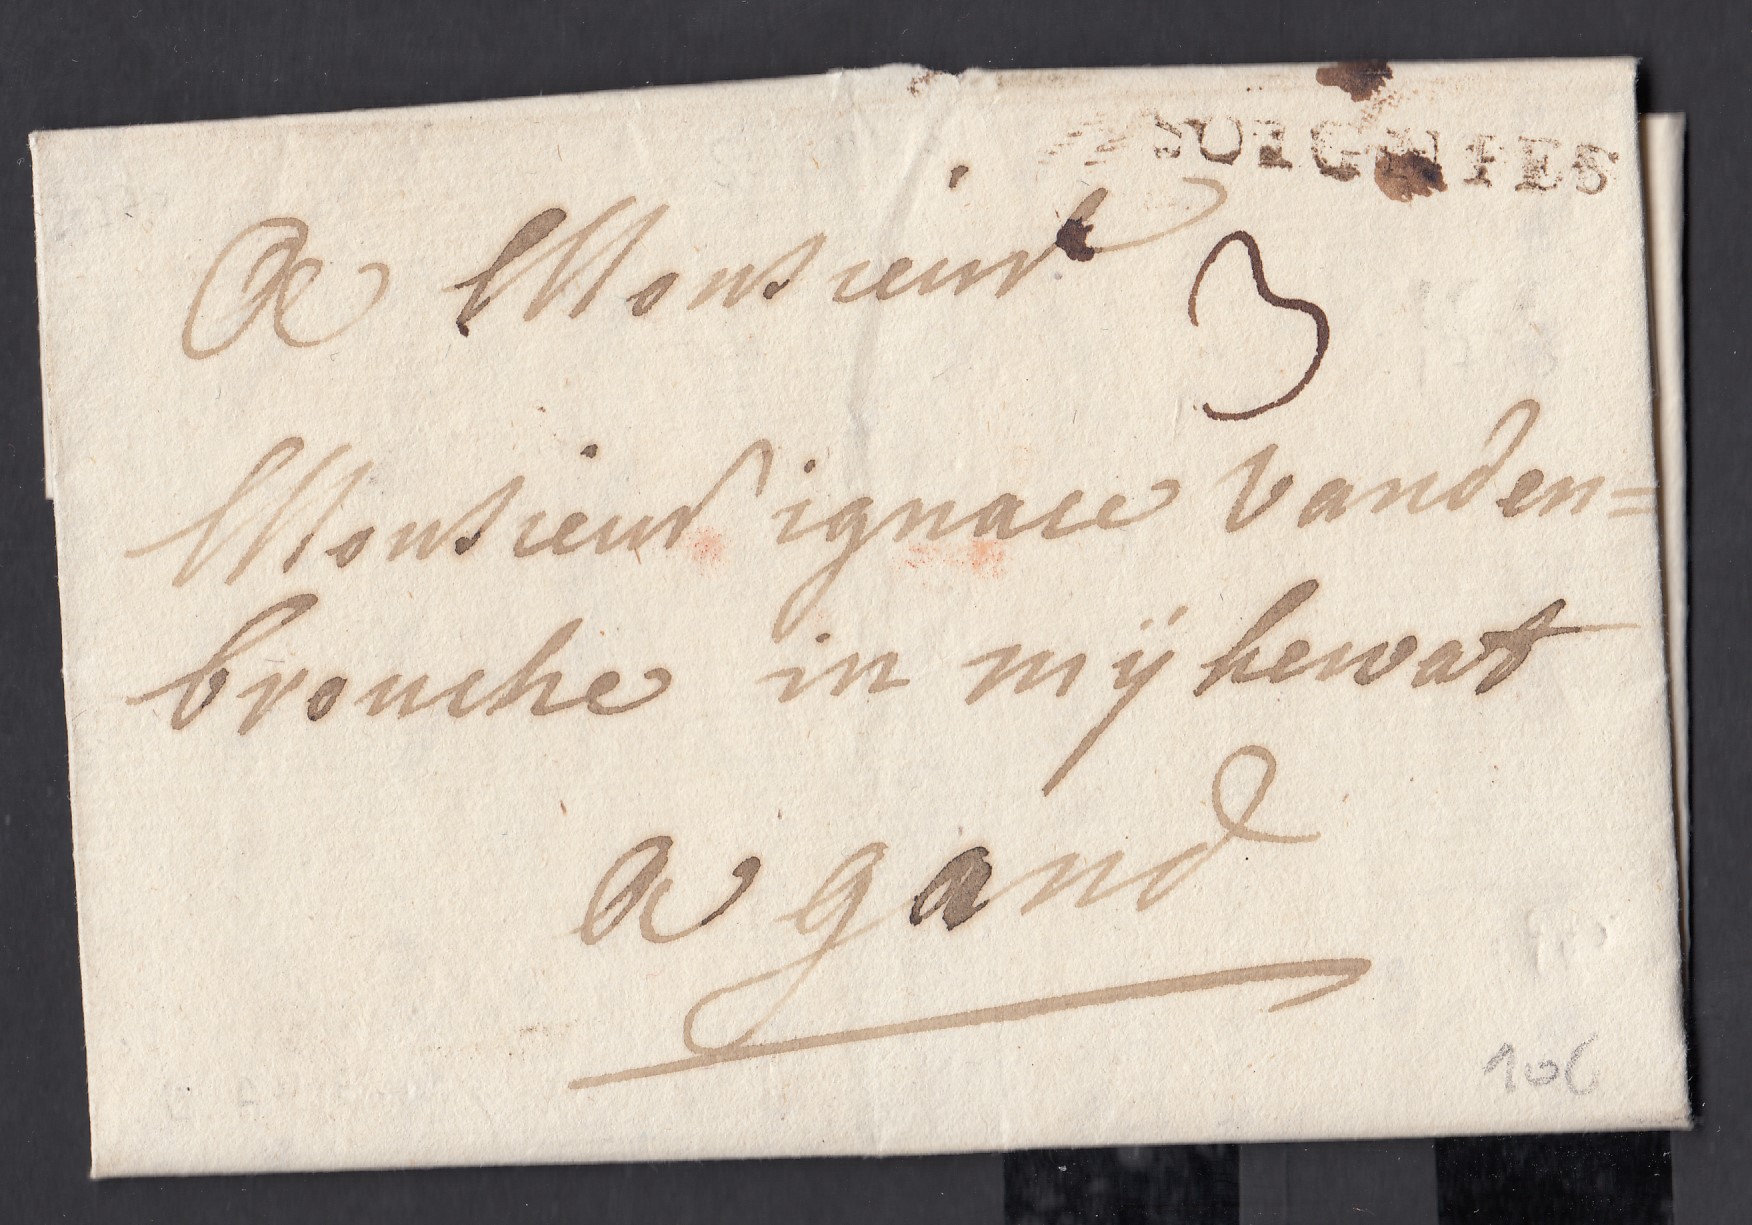 SOIGNIES
A Monsieur
3
Monsieur ignace Vanden=
brouche in mÿhewat
A gand
106